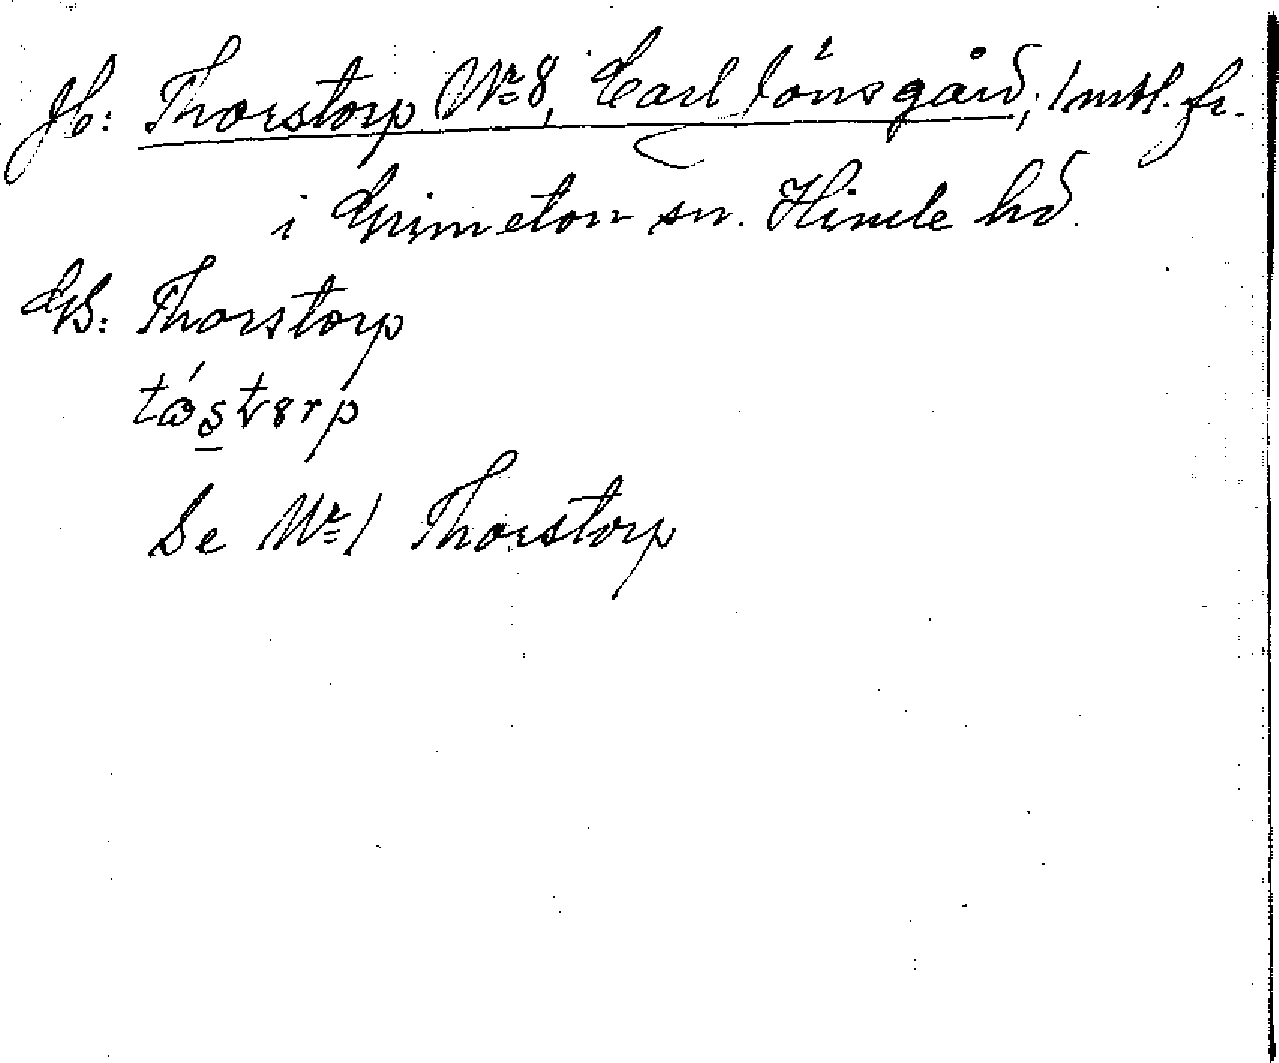 Jb: Thorstorp Nr 8, Carl Jönsgård; 1 mtl. fr.
i Grimeton sn. Himle hd.
GB: Thorstorp
Se Nr 1 Thorstorp